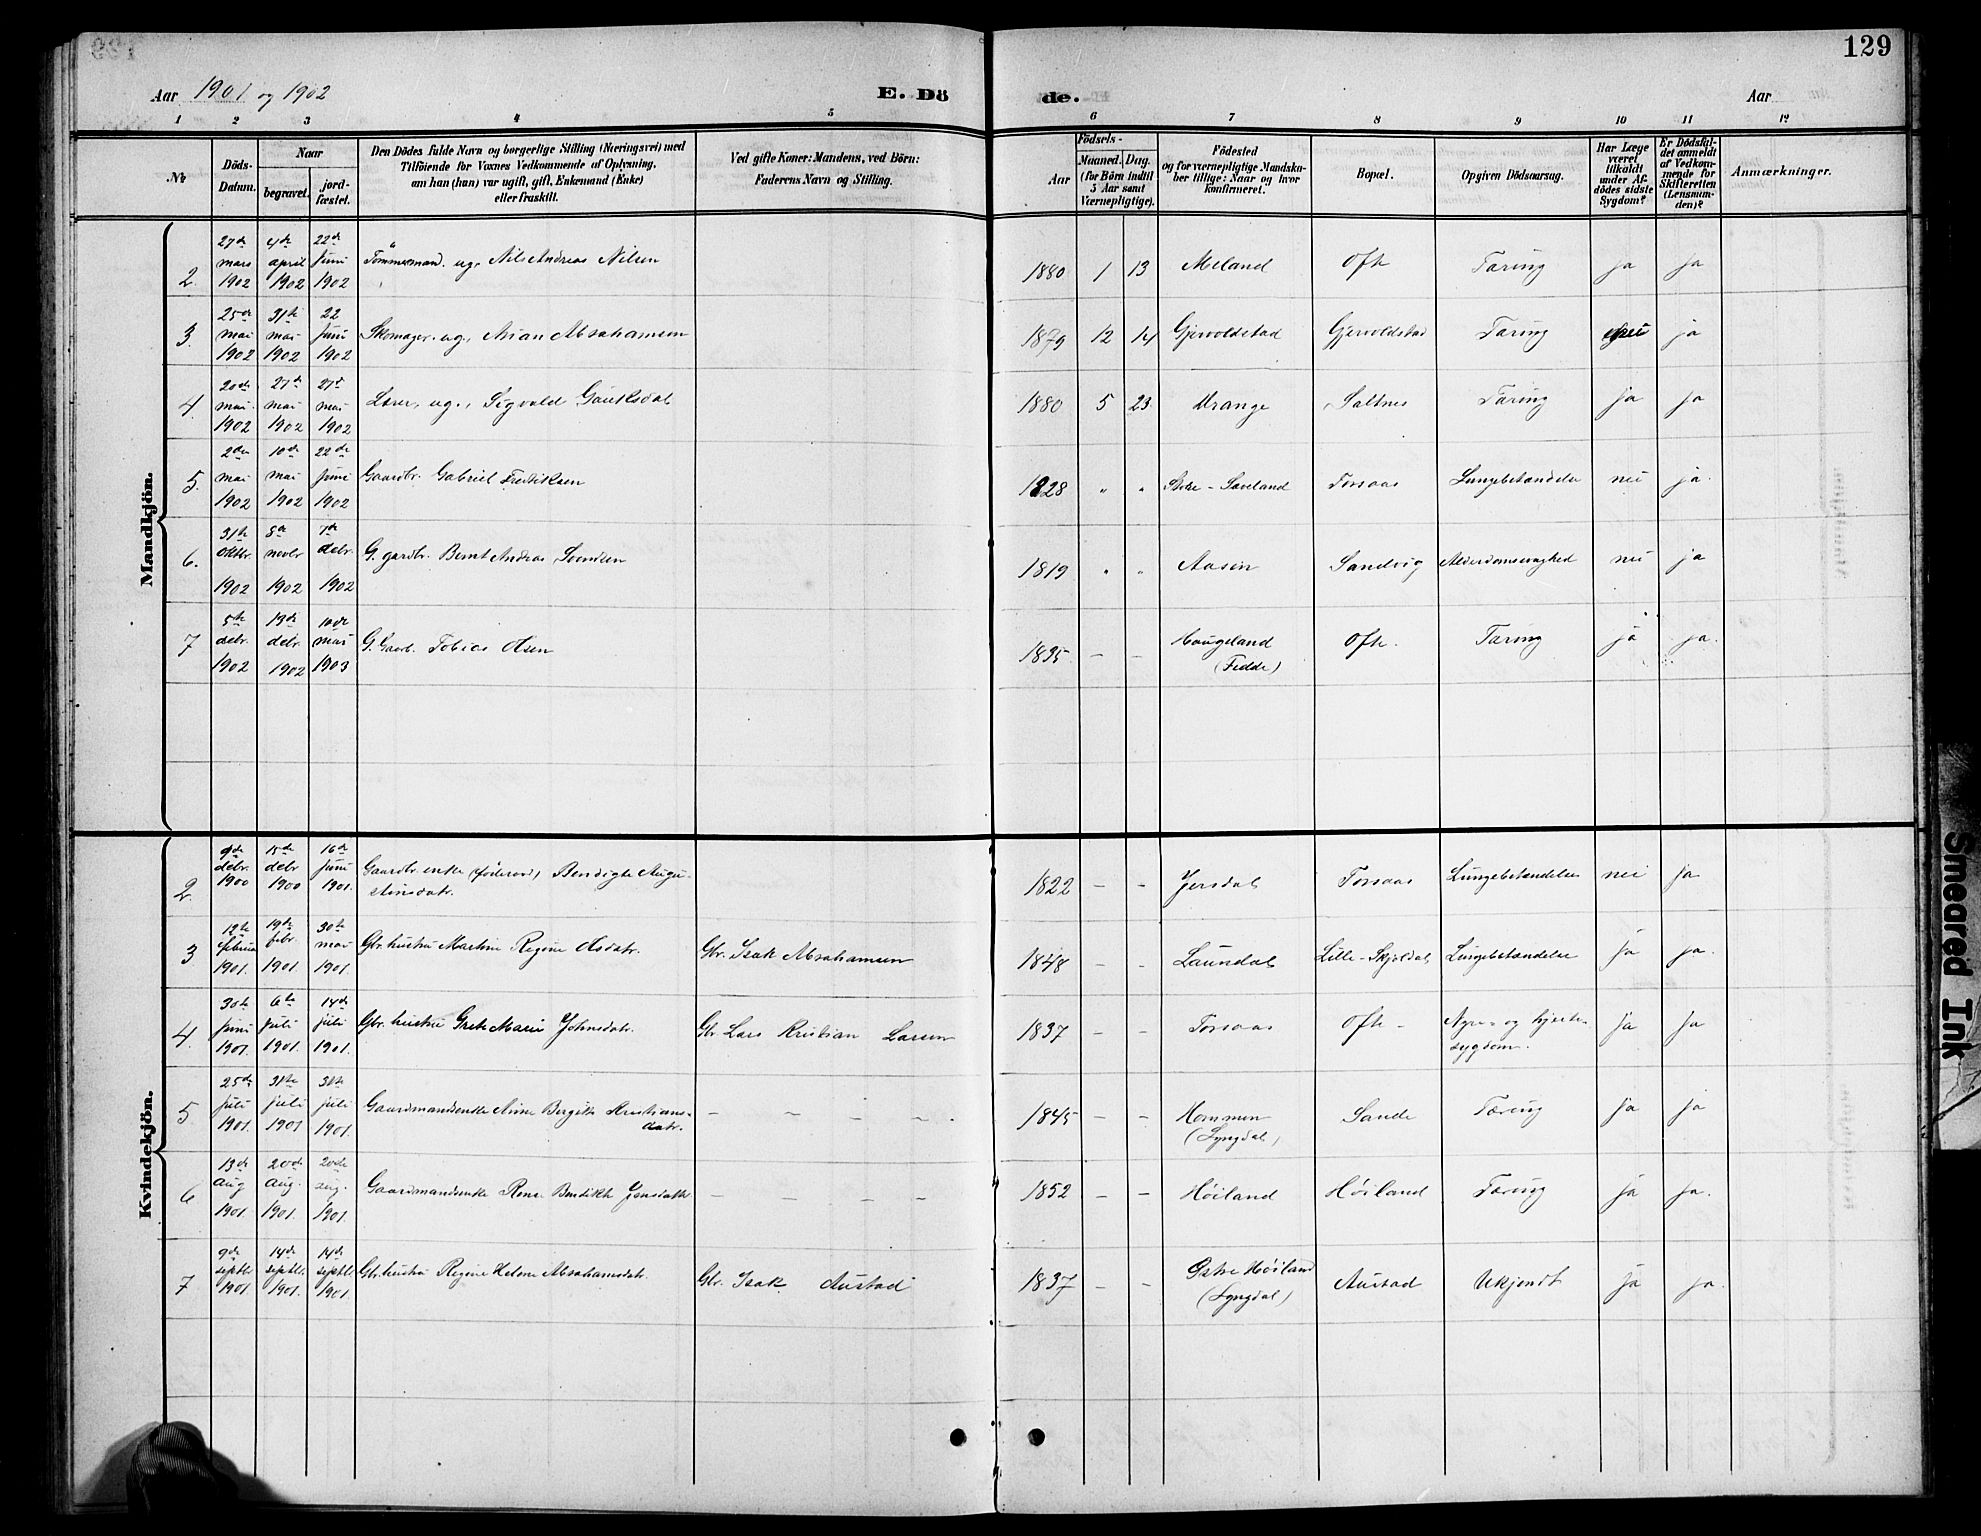 129
Aar 1901 og 1902
E. Dö
de.
Aar
1 2 3 4 5 6 7 8 9 10 11 12
No
Döds-Datum.
Naar
begravet.
jord-fæstet.
Den Dödes fulde Navn og borgerlige Stilling (Næringsvei) med
Tilföiende for Voxnes Vedkommende af Oplysning,
om han (hun) var ugift, gift, Enkemand (Enke)
eller fraskilt.
Ved gifte Koner: Mandens, ved Börn:
Faderens Navn og Stilling.
Födsels-
Aar
Maaned. Dag.
(for Börn indtil
5 Aar samt
Værnepligtige).
Födested
og for værnepligtige Mandska-
ber tillige: Naar og hvor
konfirmeret.
Bopæl.
Opgiven Dödsaarsag.
Har Læge
været
tilkaldt
under Af-
dödes sidste
Sygdom?
Er Dödsfal-
det anmeldt
af Vedkom-
mende for
Skifteretten
(Lensman-
den)?
Anmærkninger.
Mandkjön.
2. 27de mars 1902 4de april 1902 22de juni 1902 Tömmermand. ug. Nils Andreas Nilsen 1880 1 13 Meland Ofte Tæring ja ja
3. 25de mai 1902 31te mai 1902 22 juni 1902 Skomager. ug., Arian Abrahamsen 1879 12 14 Gjervoldstad Gjervoldstad Tæring nei ja
4. 20de mai 1902 27de mai 1902 27de mai 1902 Lærer, ug., Sigvald Gauksdal 1880 5 23 Urange Saltnes Tæring ja ja
5. 2den mai 1902 10de mai 1902 22de juni 1902 Gaardbr. Gabriel Fredriksen 1828 " " Store-Sæveland Forsaas Lungebetændelse nei ja
6. 31te oktbr. 1902 8de novbr 1902 7de debr. 1902 G. gardbr. Bernt Andreas Svendsen 1819 " " Aasen Sandvig Alderdomssvaghed nei ja
7 5te debr. 1902 13de debr. 1902 10de mai 1903 G. Gaardb. Tobias Olsen 1835 – – Haugeland (Fedde) Ofte. Tæring ja ja.
Kvindekjön.
2. 9de debr. 1900 15de debr 1900 16de juni 1901. Gaardbr. enke (föderaad) Bendigte Augu-
stinsdatr. 1822 – – Jersdal Forsaas Lungebetændelse nei ja
3 12te februar 1901. 19de febr. 1901. 30te mai 1901. Gbr. hustru Martine Regine Olsdatr. Gbr. Isak Abrahamsen 1848 – – Laundal Lille-Skjoldal Lungebetændelse ja ja.
4. 30te juni 1901. 6te juli 1901. 14de juli 1901. Gbr. hustru Grete Marie Johnsdatr. Gbr. Lars Kristian Larsen 1837 – – Forsaas Ofte – Nyre- og hjerte-
sygdom. ja ja
5 25de juli 1901. 31te juli 1901 31te juli 1901. Gaardmandsenke Anne Bergitte Kristians-
datr. – – – – – 1845 – – Hommen (Lyngdal) Sande Tæring ja ja
6 13de aug 1901. 20de aug. 1901. 20de aug. 1901. Gaardmandsenke Rene Bendikte Jensdatr. – – – – 1852 – – Höiland Höiland Tæring ja ja.
7 9de septbr 1901. 14de septbr. 1901. 14de septbr 1901. Gbr. hustru Regine Helene Abrahamsdatr. Gbr. Isak Austad 1837 – – Östre Höiland (Lyngdal) Austad Ukjendt ja ja.
Smeared Ink